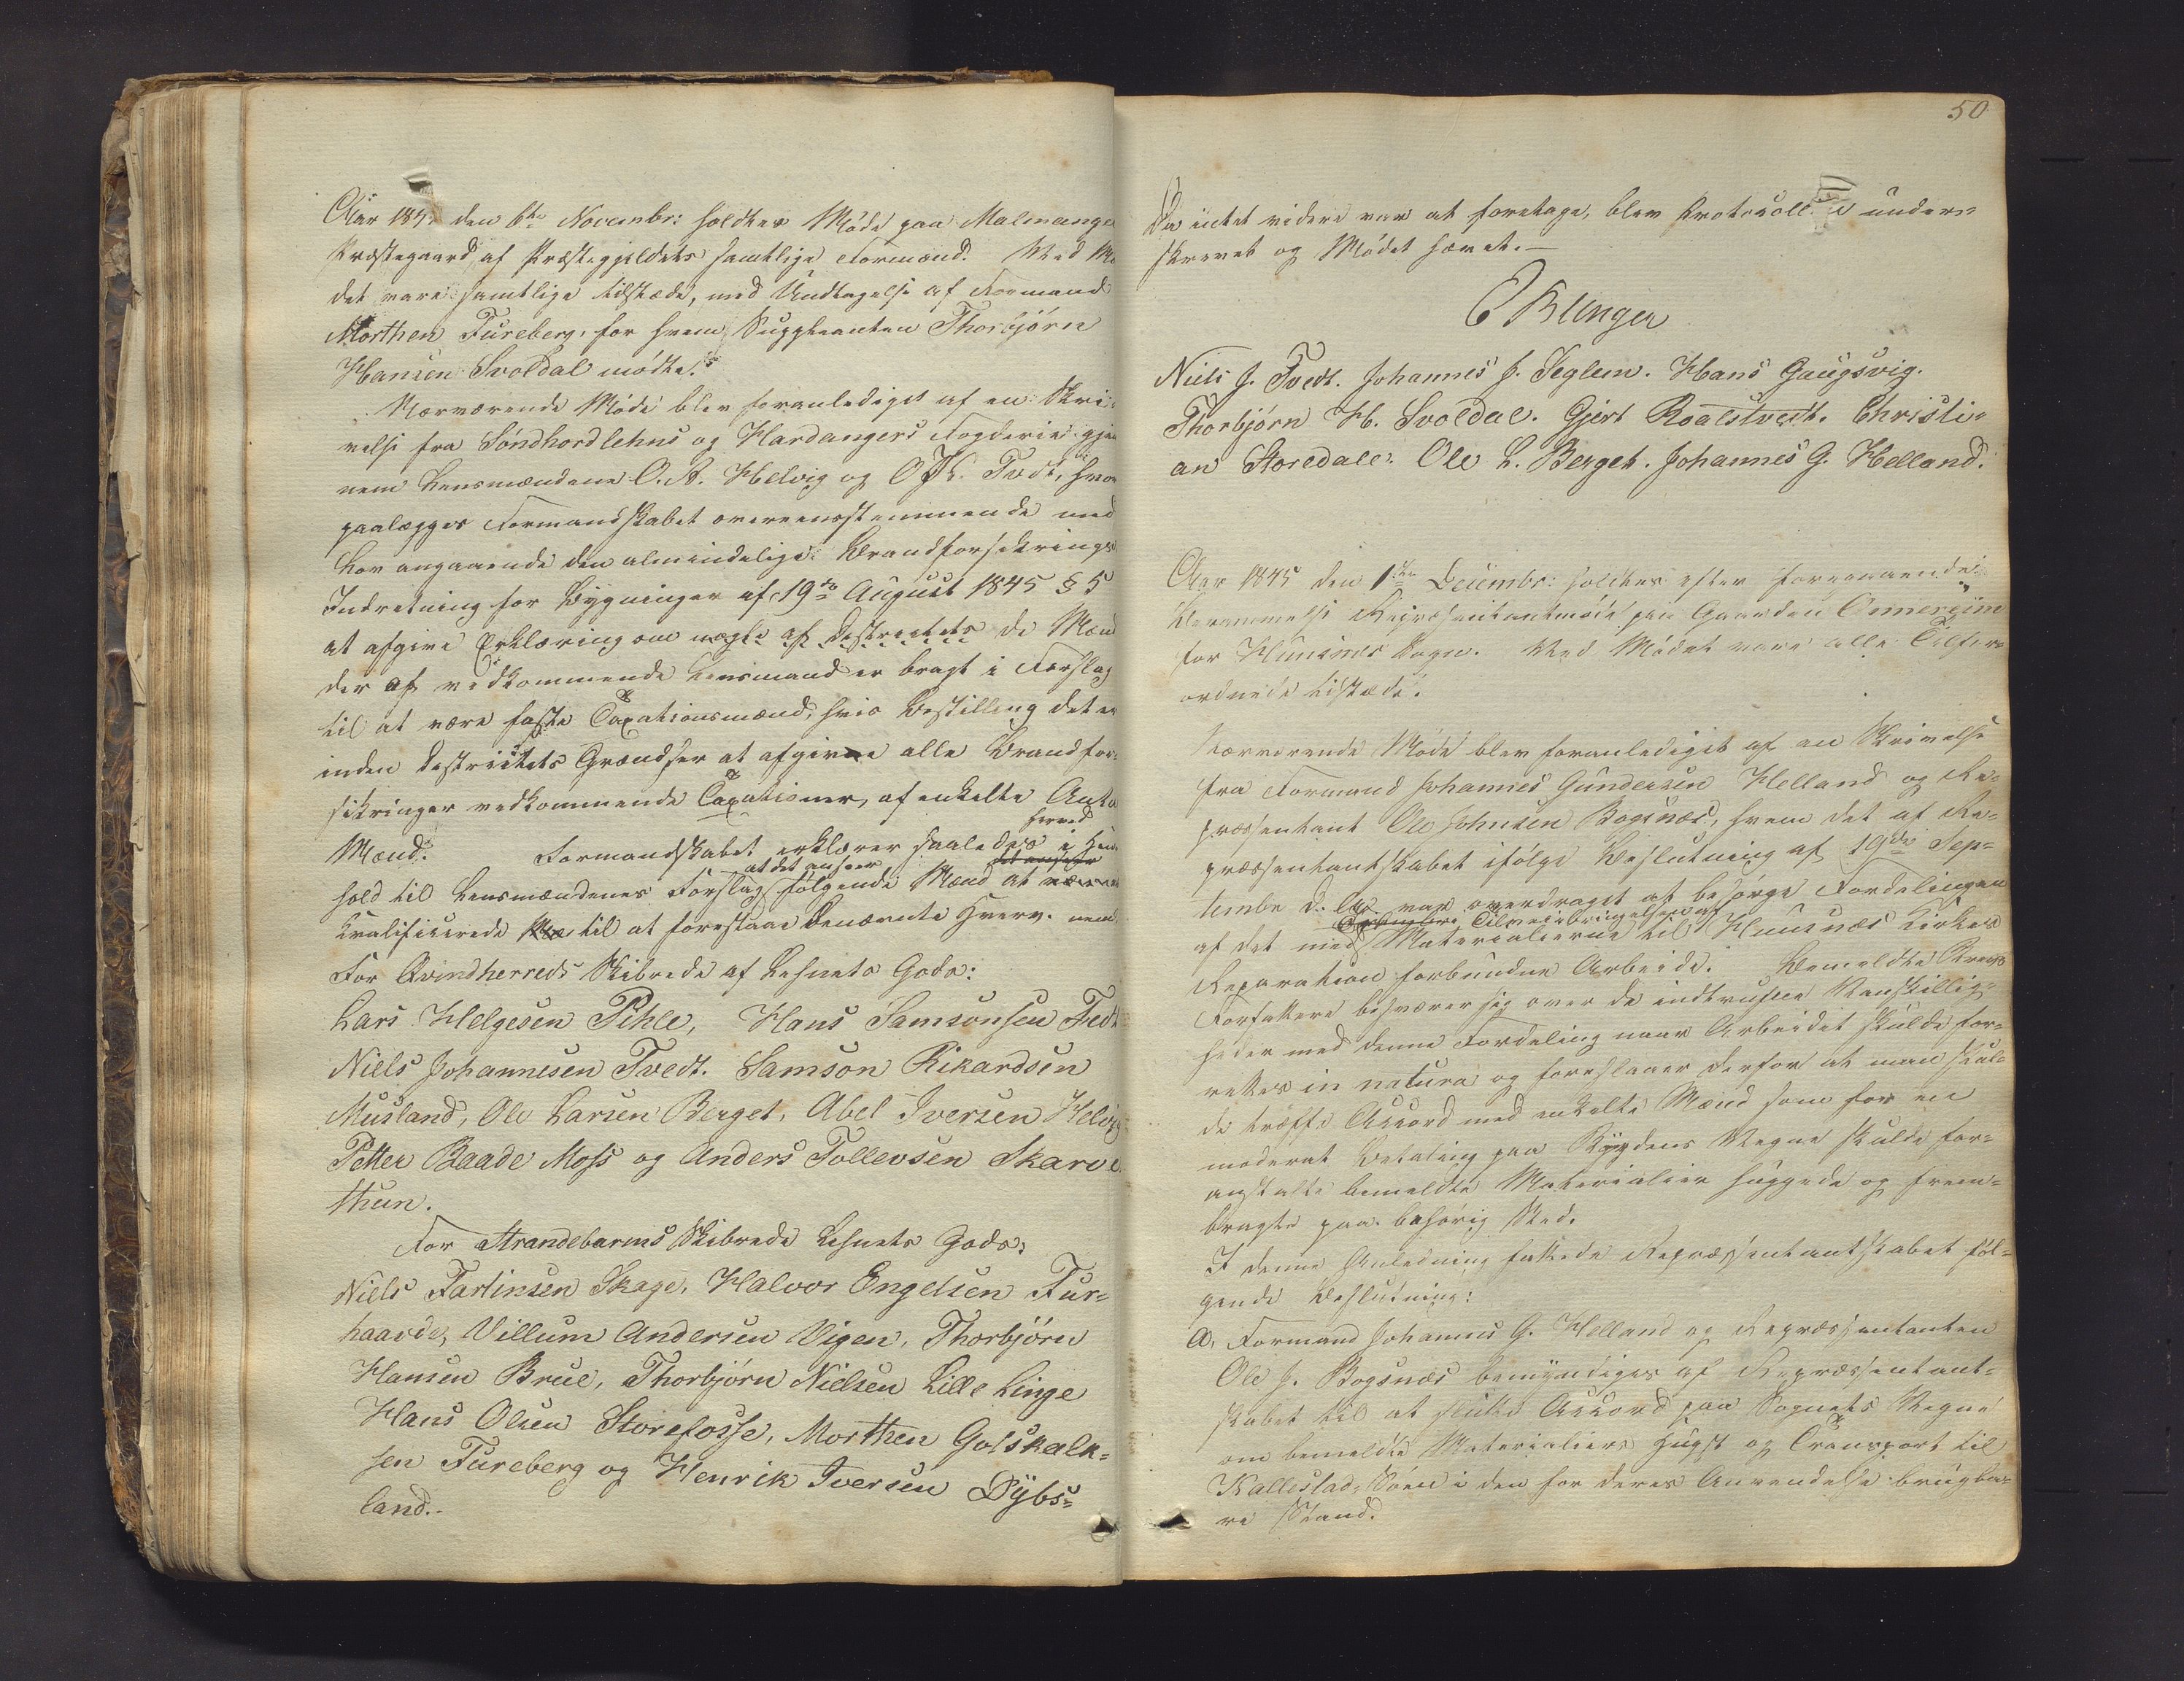 Aar 184 den 6te Novembr: holdtes Møde paa Malmange
Præstegaard af Præstegjeldets samtlige Formænd. Ved Mø
det vare samtlige tilstæde, med Undtagelse af Formand
Morthen Fureberg, for hvem Suppleanten Thorbjørn
Hansen Svoldal mødte.
Nærværende Møde blev foranlediget af en Skri-
velse fra Søndhordlehns og Hardangers Fogderie gjen
nem Lensmændene O. A. Helvig og O. K. Tvedt, hvor
paalægges Formandskabet overeensstemmende med
Lov angaaende den almindelige Brandforsikrings
Indretning for Bygninger af 19de August 1845 § 5
at afgive Erklæring om nogle af Destrictets de Mænd
der af vedkommende Lensmand er bragt i Forslag
til at være faste Taxationsmænd, hvis Bestilling det er
inden Destrictets Grændser at afgive alle Brandfor-
sikringer vedkommende Taxationer, af enkelte
Mænd. Formandskabet erklærer saaledes herved i Hen
hold til Lensmændenes Forslag at det anseer følgende Mænd at være
kvalificerede til at forestaae benævnte Hverv. nem
For Qvindherreds Skibrede af Lehnets Gods:
Lars Helgesen Pihle, Hans Samsonsen Tvedt
Niels Johannesen Tvedt. Samson Rikardsen
Musland, Ole Larsen Berget, Abel Iversen Helvig
Petter Baade Moss og Anders Tollevsen Skarve
thun.
For Strandebarms Skibrede Lehnets Gods:
Niels Tartinsen Skage, Halvor Engelsen Fur-
haavde, Villum Andersen Vigen, Thorbjørn
Hansen Brue, Thorbjørn Nielsen Lille Linge
Hans Olsen Storefosse, Morthen Gotskalk-
sen Fureberg og Henrik Iversen Dybs-
land.
50
Da intet videre var at foretage, blev Protocollen under-
skrevet og Mødet hævet.
E Klinger
Niels J. Tvedt. Johannes J. Teglem. Hans Gaugsvig.
Thorbjørn H. Svoldal. Gjert Roalstvedt. Christi-
an Storedale. Ole L. Berget. Johannes G. Helland.
Aar 1845 den 1ste Decembr: holdtes efter foregaaende
Berammelse Repræsentantmøde paa Gaarden Omereim
for Huusnes Sogn. Ved Mødet vare alle Tilfor-
ordnede tilstæde.
Nærværende Møde blev foranlediget af en Skrivelse
fra Formand Johannes Gundersen Helland og Re-
præsentant Ole Johnsen Bogsnæs, hvem det af Re-
præsentantskabet ifølge Beslutning af 19de Sep-
tembr d. A. var overdraget at besørge Fordelingen
af det med Tilveiebringelsen af Materialierne til Huusnæs Kirkes
Reparation forbundne Arbeide. Bemeldte Brevs
Forfattere besværer sig over de indtrufne Vanskelig-
heder med denne Fordeling naar Arbeidet skulde for-
rettes in natura og foreslaaer derfor at man skul-
de træffe Accord med enkelte Mænd som for en
moderat Betaling paa Bygdens Regne skulde for-
anstalte bemeldte Materialier huggede og frem-
bragte paa behørig Sted.
I denne Anledning fattede Repræsentantskabet føl-
gende Beslutning:
A, Formand Johannes G. Helland og Repræsentanten
Ole J. Bogsnæs bemyndiges af Repræsentant-
skabet til at slutte Accord paa Sognets Regne
om bemeldte Materialiers Hugst og Transport til
Vallestad-Søen i den for deres Anvendelse brugba-
re Stand.